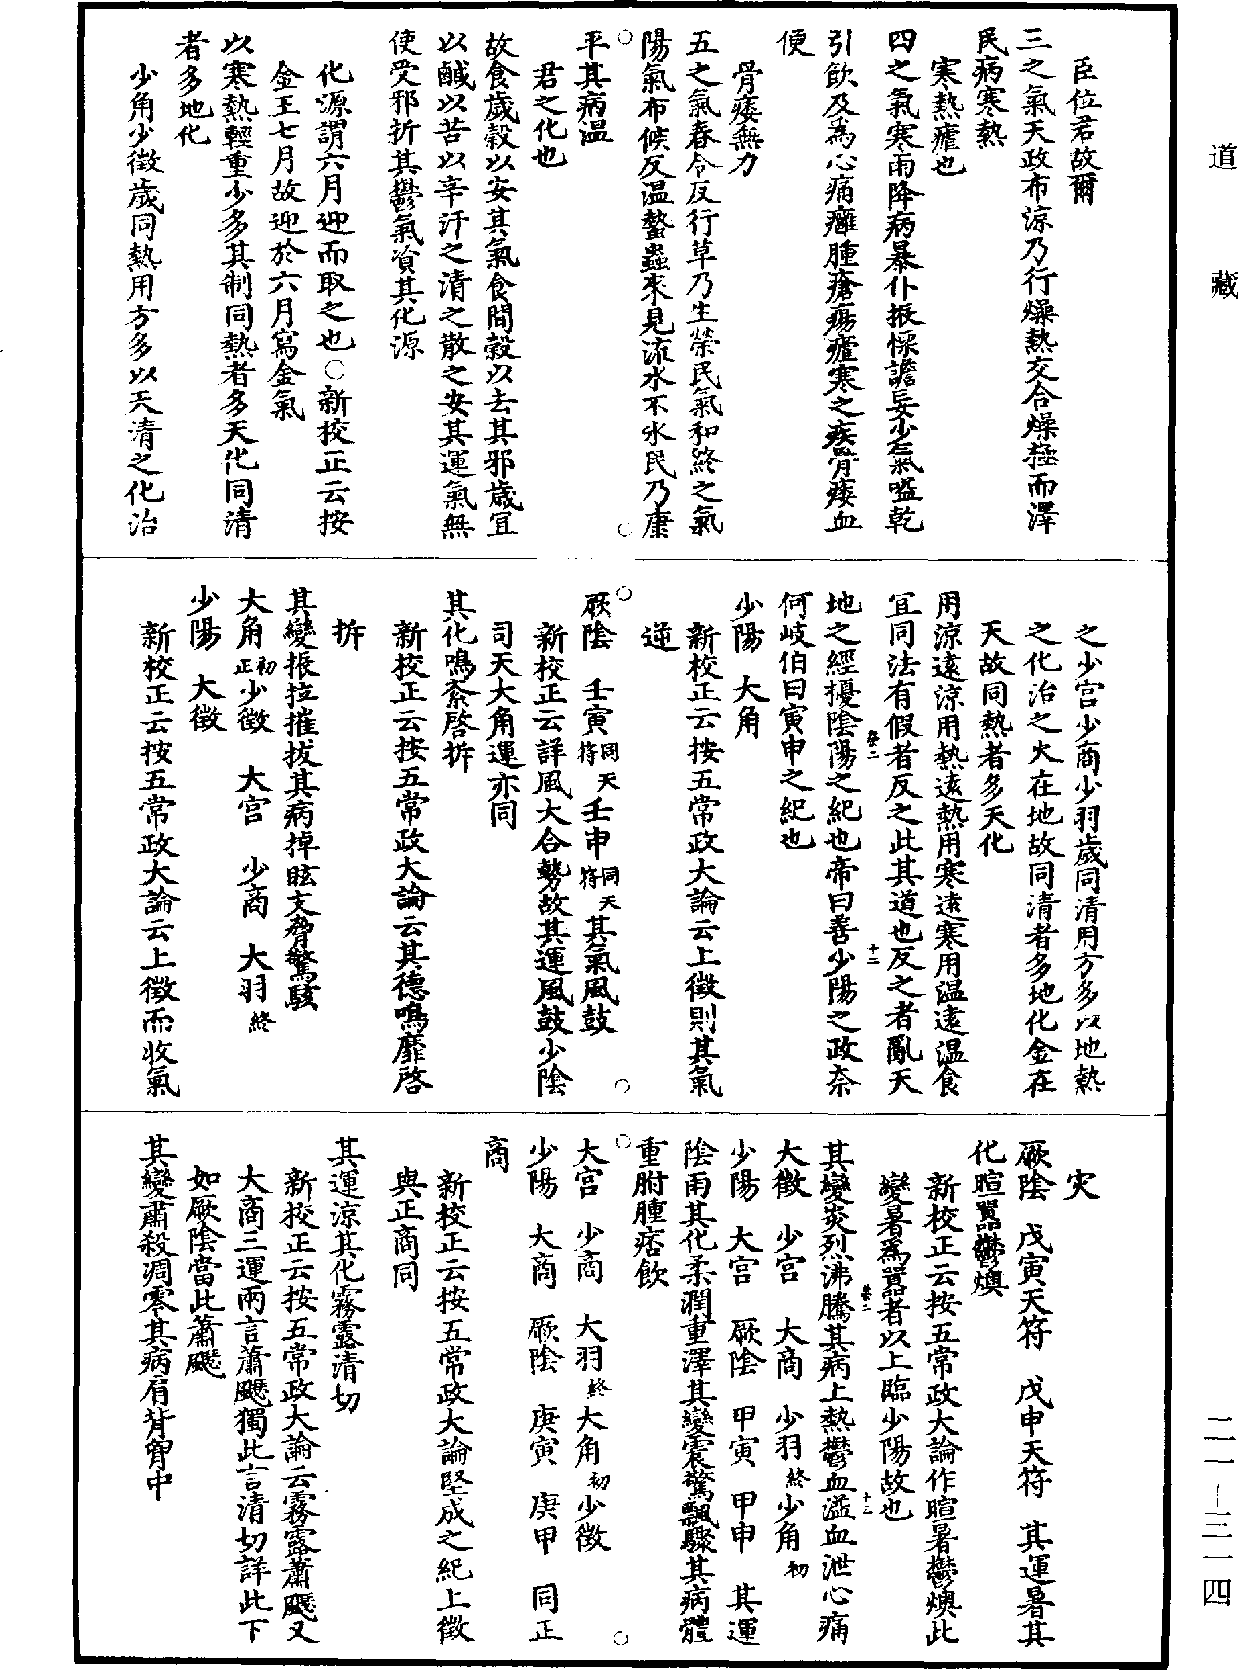 道藏
臣位君故爾
三之氣天政布涼乃行燥熱交合燥極而澤
民病寒熱
寒熱瘧也
四之氣寒雨降病暴仆振慄譫妄少氣嗌乾
引飲及爲心痛癰腫瘡瘍瘧寒之疾骨痿血
便
骨痿無力
五之氣春令反行草乃生榮民氣和終之氣
陽氣布候反温蟄蟲來見流水不氷民乃康
平其病温
君之化也
故食歲穀以安其氣食間穀以去其邪歲宜
以鹹以苦以辛汗之清之散之安其運氣無
使受邪折其鬱氣資其化源
化源謂六月迎而取之也○新校正云按
金王七月故迎於六月寫金氣
以寒熱輕重少多其制同熱者多天化同清
者多地化
少角少徵歲同熱用方多以天清之化治
之少宫少商少羽歲同清用方多以地熱
之化治之火在地故同清者多地化金在
天故同熱者多天化
用涼遠涼用熱遠熱用寒遠寒用温遠温食
宜同法有假者反之此其道也反之者亂天
卷二 十二
地之經擾陰陽之紀也帝曰善少陽之政奈
何岐伯曰寅申之紀也
少陽 大角
新校正云按五常政大論云上徵則其氣
逆
厥陰 壬寅同天符 壬申同天符 其氣風鼓
新校正云詳風大合勢故其運風鼓少陰
司天大角運亦同
其化鳴紊啓拆
新校正云按五常政大論云其德鳴靡啓
拆
其變振拉摧拔其病掉眩支脅驚駭
大角初正 少徵 大宫 少商 大羽終
少陽 大徵
新校正云按五常政大論云上徵而收氣
灾
厥陰 戊寅天符 戊申天符 其運暑其
化暄嚣鬱燠
新校正云按五常政大論作暄暑鬱燠此
變暑爲嚣者以上臨少陽故也
卷二 十三
其變炎烈沸騰其病上熱鬱血溢血泄心痛
大徵 少宫 大商 少羽終 少角初
少陽 大宫 厥陰 甲寅 甲申 其運
陰雨其化柔潤重澤其變震驚飄驟其病體
重胕腫痞飲
大宫 少商 大羽終 大角初 少徵
少陽 大商 厥陰 庚寅 庚甲 同正
商
新校正云按五常政大論堅成之紀上徵
與正商同
其運涼其化霧露清切
新校正云按五常政大論云霧露蕭飋又
大商三運兩言蕭飋獨此言清切詳此下
如厥陰當此蕭飋
其變肅殺凋零其病肩背胷中
二一—三一四